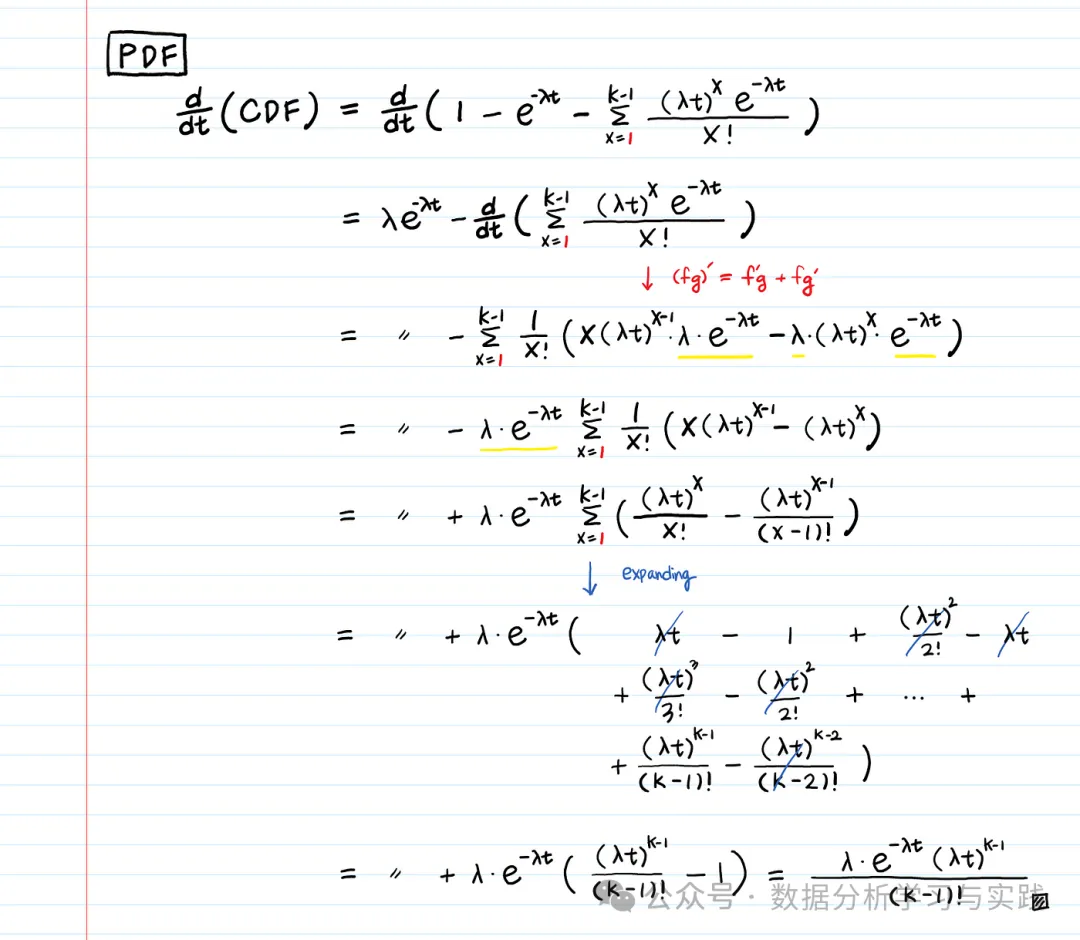 PDF
d/dt (CDF) = d/dt ( 1 - e^{-λt} - Σ_{x=1}^{k-1} (λt)^x e^{-λt} / x! )
= λe^{-λt} - d/dt ( Σ_{x=1}^{k-1} (λt)^x e^{-λt} / x! )
↓ (fg)′ = f′g + fg′
= 〃 - Σ_{x=1}^{k-1} 1/x! ( x(λt)^{x-1}·λ·e^{-λt} - λ·(λt)^x·e^{-λt} )
= 〃 - λ·e^{-λt} Σ_{x=1}^{k-1} 1/x! ( x(λt)^{x-1} - (λt)^x )
= 〃 + λ·e^{-λt} Σ_{x=1}^{k-1} ( (λt)^x / x! - (λt)^{x-1} / (x-1)! )
↓ expanding
= 〃 + λ·e^{-λt} ( λt - 1 + (λt)^2 / 2! - λt
+ (λt)^3 / 3! - (λt)^2 / 2! + ... +
+ (λt)^{k-1} / (k-1)! - (λt)^{k-2} / (k-2)! )
= 〃 + λ·e^{-λt} ( (λt)^{k-1} / (k-1)! - 1 ) = λ·e^{-λt} (λt)^{k-1} / (k-1)!
公众号·数据分析学习与实践